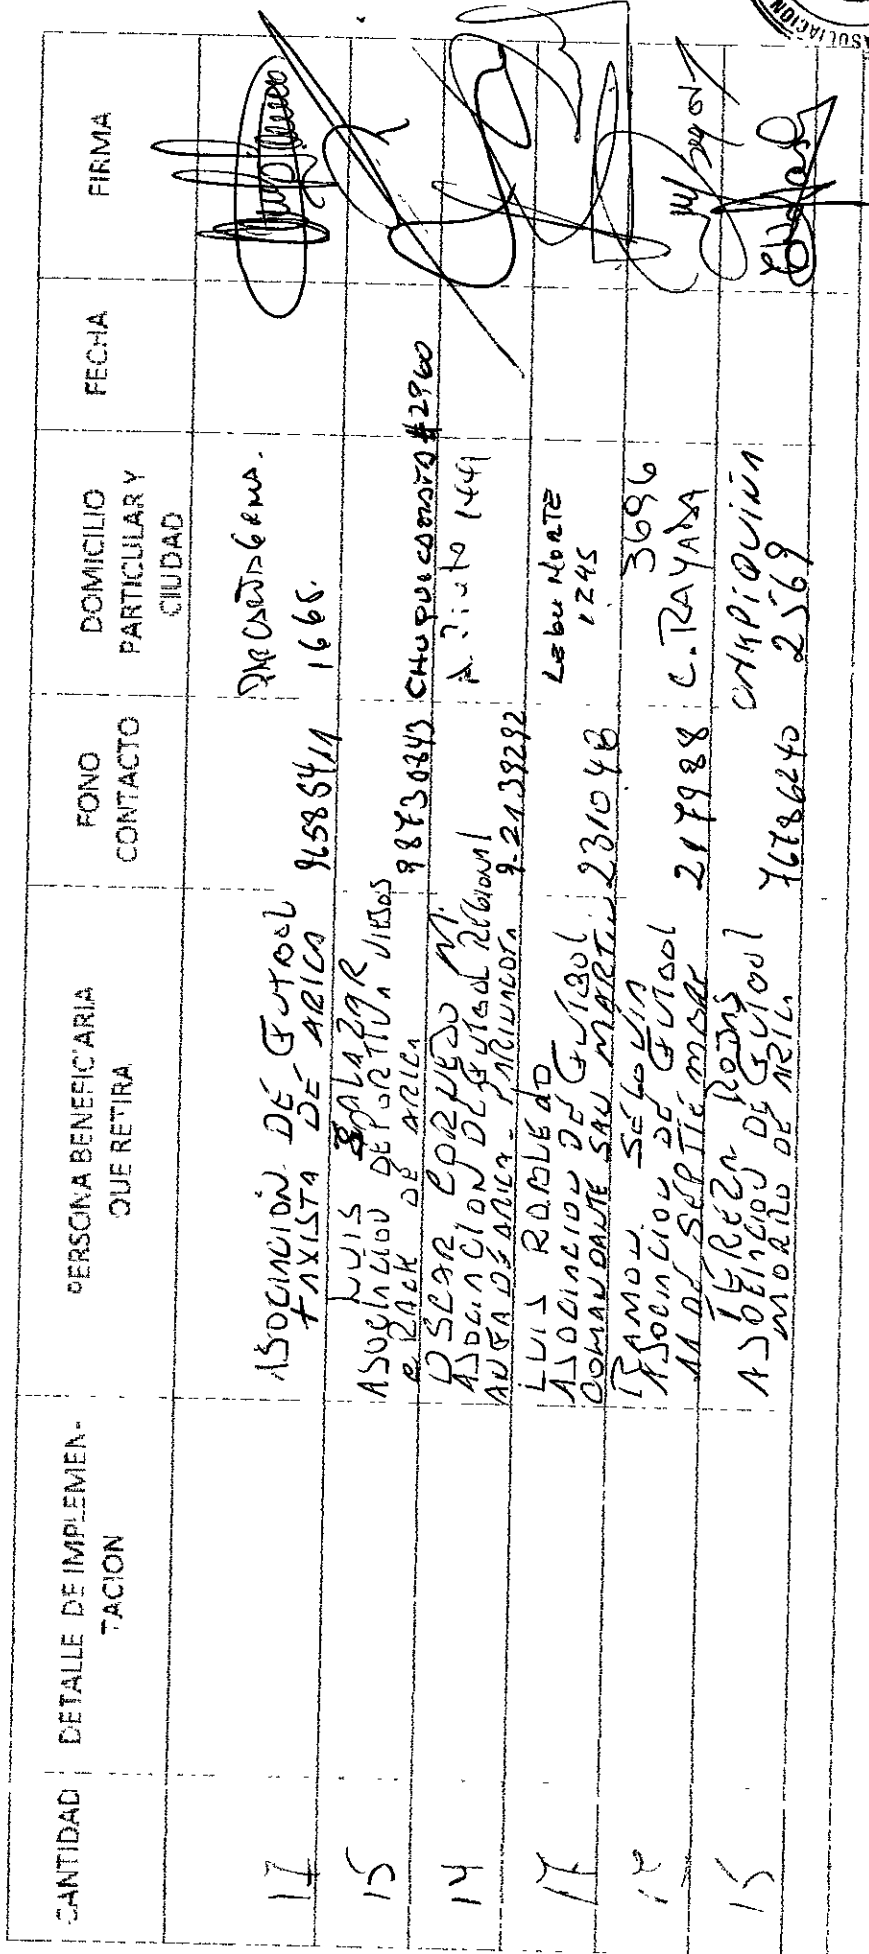 CANTIDAD
DETALLE DE IMPLEMEN-
TACION
PERSONA BENEFICIARIA
QUE RETIRA
FONO
CONTACTO
DOMICILIO
PARTICULAR Y
CIUDAD
FECHA
FIRMA
17
ASOCIACION DE FUTBOL
TAXISTA DE ARICA
96585411
1665.
15
LUIS SALAZAR
ASOCIACION DEPORTIVA VIEJOS
CRACK DE ARICA
98730843
CHUQUICAMATA #2960
14
OSCAR CORNEJO M.
ASOCIACION DE FUTBOL REGIONAL
ANFA DE ARICA - PARINACOTA
9-2139292
A. Pinto 1441
17
LUIS ROBLEDO
ASOCIACION DE FUTBOL
COMANDANTE SAN MARTIN
231048
Lebu Norte
1245
RAMON SEGOVIA
ASOCIACION DE FUTBOL
11 DE SEPTIEMBRE
217988
3696
C. RAYADA
15
TEREZA ROJAS
ASOCIACION DE FUTBOL
MORRO DE ARICA
76786240
CHAPIQUIÑA
2569
ASOCIACION